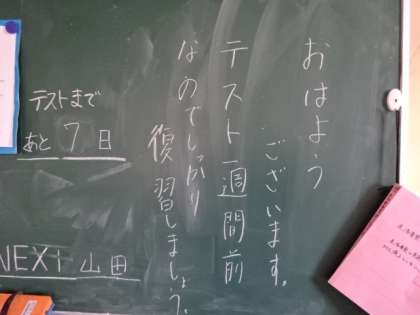 おはよう
ございます。
テスト一週間前
なのでしっかり
復習しましょう。
テストまで
あと 7 日
NEXt 山田